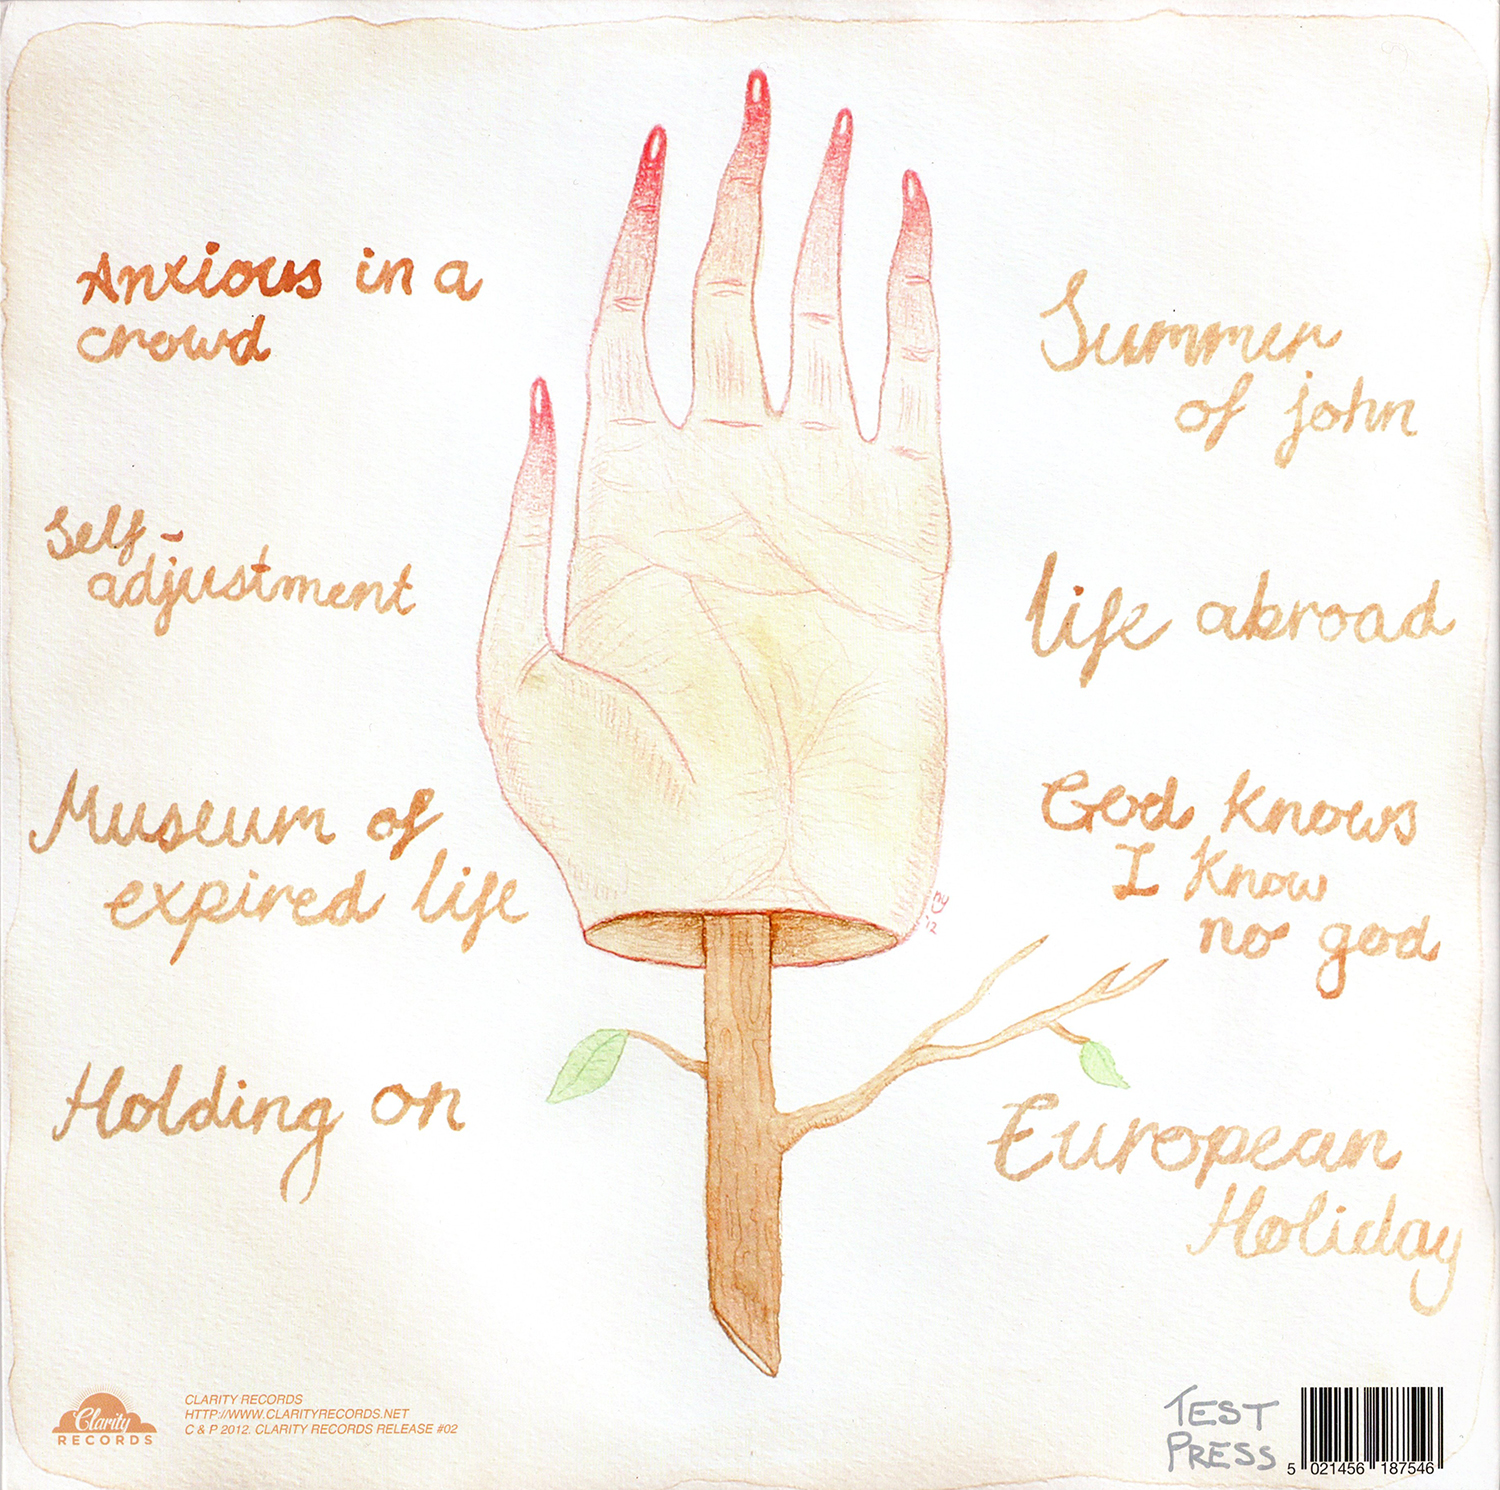 Anxious in a
crowd
Self-
adjustment
Museum of
expired life
Holding on
Summer
of john
life abroad
God knows
I know
no god
European
Holiday
Clarity
RECORDS
CLARITY RECORDS
HTTP://WWW.CLARITYRECORDS.NET
C & P 2012. CLARITY RECORDS RELEASE #02
TEST
PRESS
5 021456 187546